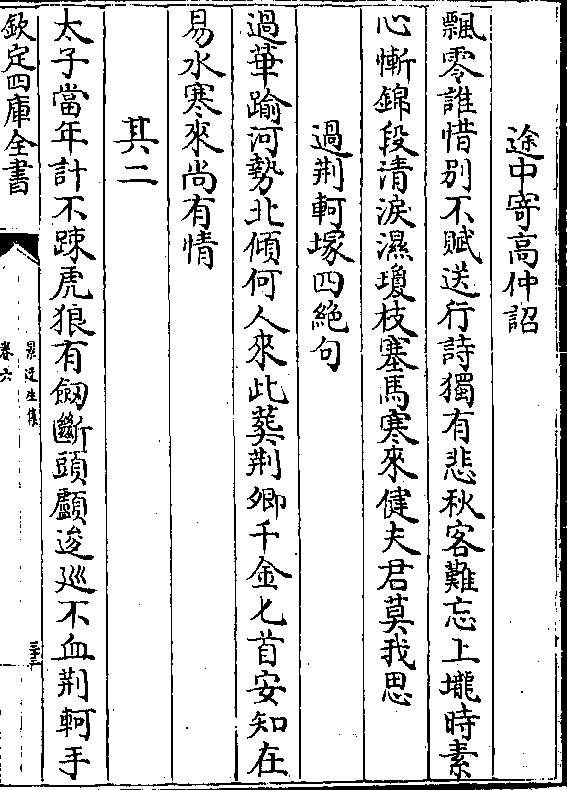 途中寄高仲詔
飄零誰惜别不賦送行詩獨有悲秋客難忘上壠時素
心慚錦段清淚濕瓊枝塞馬寒來健夫君莫我思
過荆軻塚四絶句
過華踰河勢北傾何人來此葬荆卿千金匕首安知在
易水寒來尚有情
其二
太子當年計不踈虎狼有劒斷頭顱逡廵不血荆軻手
欽定四庫全書
景迂生集
卷六